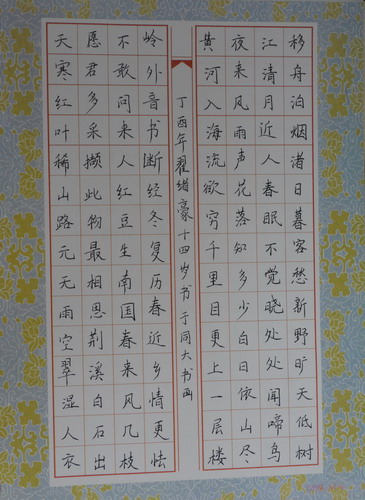 移舟泊烟渚日暮客愁新野旷天低树
江清月近人春眠不觉晓处处闻啼鸟
夜来风雨声花落知多少白日依山尽
黄河入海流欲穷千里目更上一层楼
丁酉年翟绪豪十四岁书于同大书画
岭外音书断经冬复历春近乡情更怯
不敢问来人红豆生南国春来风几枝
愿君多采撷此物最相思荆溪白石出
天寒红叶稀山路元无雨空翠湿人衣